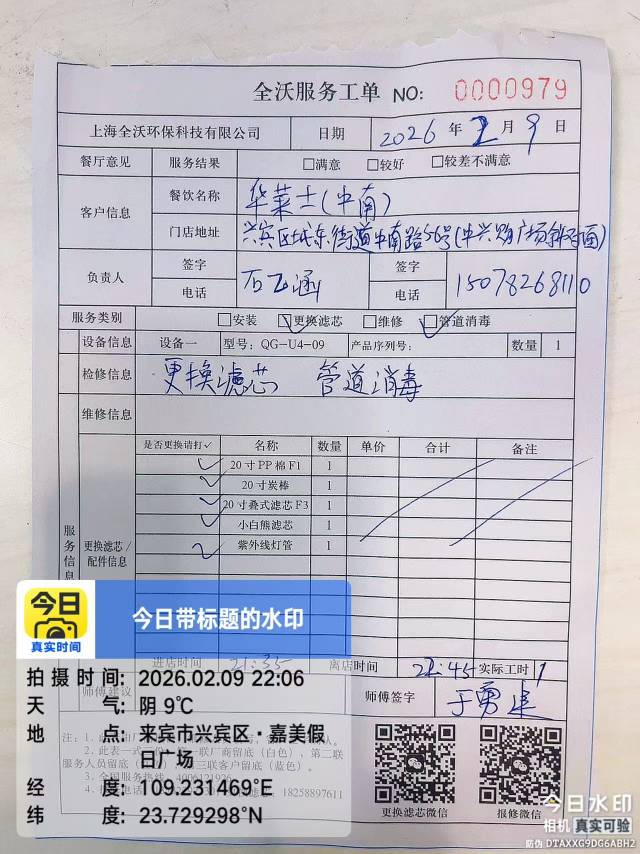 全沃服务工单 NO: 0000979
上海全沃环保科技有限公司 日期 2026 年 2 月 9 日
餐厅意见 服务结果 □满意 □较好 □较差不满意
客户信息 餐饮名称 华莱士(中南)
门店地址 兴宾区城东街道中南路56号(中兴购广场斜对面)
负责人 签字 签字
电话 电话 15078268110
服务类别 □安装 □更换滤芯 □维修 □管道消毒
设备信息 设备一 型号: QG-U4-09 产品序列号: 数量 1
检修信息 更换滤芯 管道消毒
维修信息
服务信息 更换滤芯/配件信息
是否更换请打✓ 名称 数量 单价 合计 备注
✓ 20寸PP棉F1 1
✓ 20寸炭棒 1
✓ 20寸叠式滤芯F3 1
✓ 小白熊滤芯 1
✓ 紫外线灯管 1
进店时间 21:35 离店时间 22:45 实际工时 1
师傅建议 师傅签字 于勇建
2. 此表一式
联厂商留底(白色)、第二联
服务人员留底
三联客户留底(蓝色)。
3. 全国服务热线: 4006121926
18258897611
更换滤芯微信 报修微信
今日
真实时间
今日带标题的水印
拍摄时间: 2026.02.09 22:06
天 气: 阴 9℃
地 点: 来宾市兴宾区·嘉美假日广场
经 度: 109.231469°E
纬 度: 23.729298°N
今日水印
相机 真实可验
防伪 DTAXXG9DG6ABH2